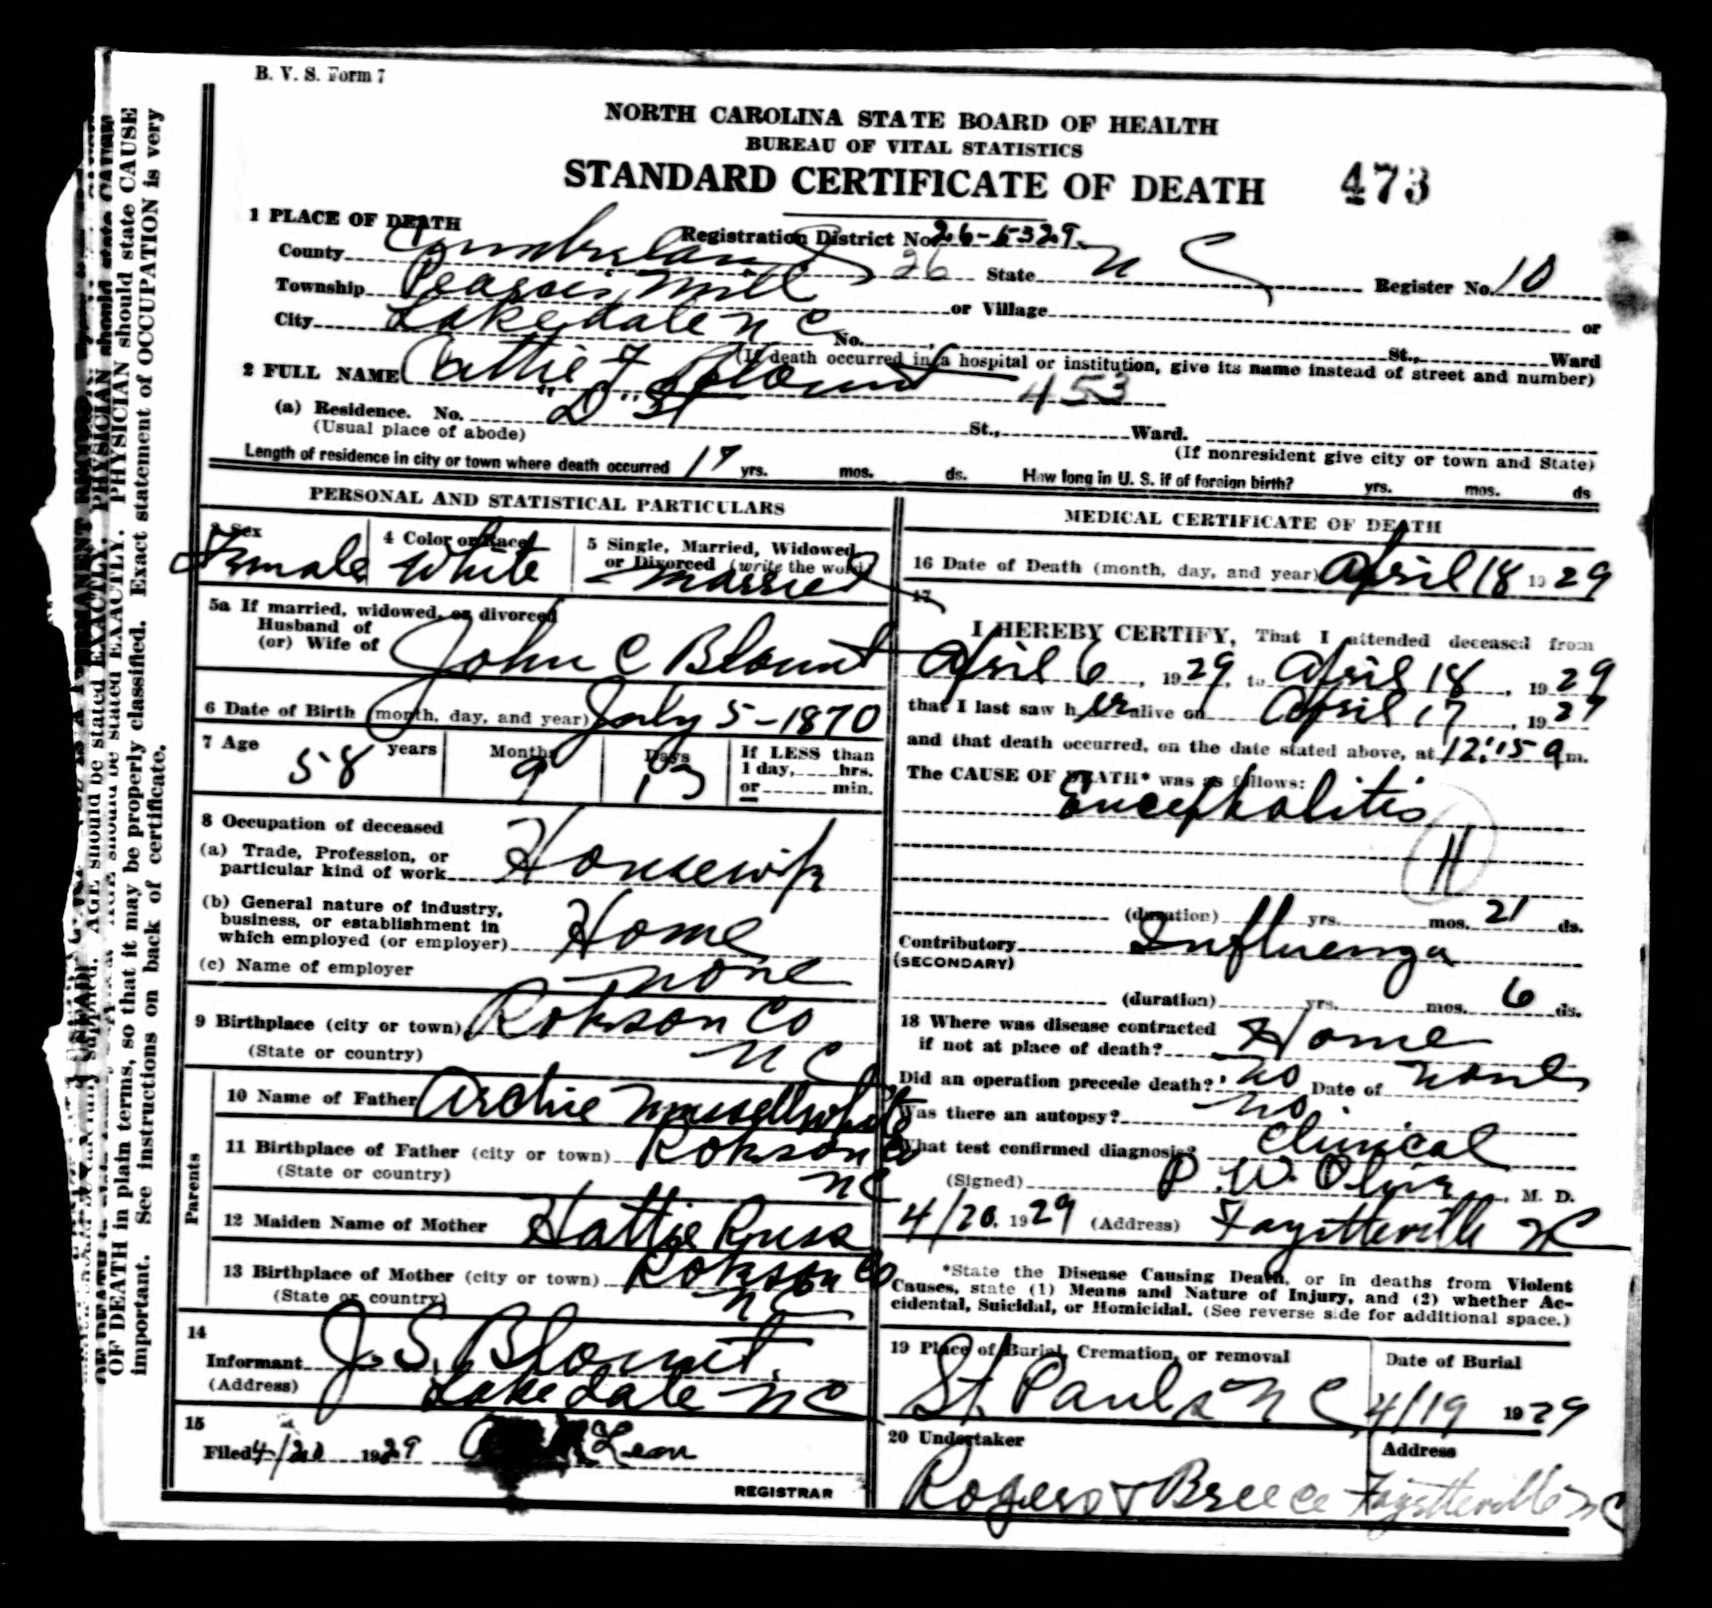 B. V. S. Form 7
NORTH CAROLINA STATE BOARD OF HEALTH
BUREAU OF VITAL STATISTICS
STANDARD CERTIFICATE OF DEATH 473
1 PLACE OF DEATH
Registration District No. 26-5329
County Cumberland 26 State N C Register No. 10
Township Pearces Mill or Village or
City Lakedale N C No. St., Ward
(If death occurred in a hospital or institution, give its name instead of street and number)
2 FULL NAME Cattie F Blount 453
(a) Residence. No. "D" St St., Ward.
(Usual place of abode) (If nonresident give city or town and State)
Length of residence in city or town where death occurred 17 yrs. mos. ds. How long in U. S. if of foreign birth? yrs. mos. ds
PERSONAL AND STATISTICAL PARTICULARS
3 Sex Female
4 Color or Race White
5 Single, Married, Widowed
or Divorced (write the word) married
5a If married, widowed, or divorced
Husband of
(or) Wife of John C Blount
6 Date of Birth (month, day, and year) July 5-1870
7 Age 58 years 9 Months 13 Days
If LESS than
1 day, hrs.
or min.
8 Occupation of deceased
(a) Trade, Profession, or
particular kind of work Housewife
(b) General nature of industry,
business, or establishment in
which employed (or employer) Home
(c) Name of employer none
9 Birthplace (city or town) Robson Co
(State or country) N C
Parents
10 Name of Father Archie Mussellwhite
11 Birthplace of Father (city or town) Robson Co
(State or country) N C
12 Maiden Name of Mother Hattie Russ
13 Birthplace of Mother (city or town) Robson Co
(State or country) N C
14
Informant J. S. Blount.
(Address) Lakedale N C
15
Filed 4/20 1929
REGISTRAR
MEDICAL CERTIFICATE OF DEATH
16 Date of Death (month, day, and year) April 18 1929
17
I HEREBY CERTIFY, That I attended deceased from
April 6, 1929, to April 18, 1929
that I last saw her alive on April 17, 1929
and that death occurred, on the date stated above, at 12:15 a m.
The CAUSE OF DEATH* was as follows:
Encephalitis
11
(duration) yrs. mos. 21 ds.
Contributory Influenza
(SECONDARY)
(duration) yrs. mos. 6 ds.
18 Where was disease contracted
if not at place of death? Home
Did an operation precede death? no Date of none
Was there an autopsy? no
What test confirmed diagnosis? Clinical
(Signed) P. W. Oliver, M. D.
4/20, 1929 (Address) Fayetteville N C
*State the Disease Causing Death, or in deaths from Violent
Causes, state (1) Means and Nature of Injury, and (2) whether Ac-
cidental, Suicidal, or Homicidal. (See reverse side for additional space.)
19 Place of Burial, Cremation, or removal
St. Pauls N C
Date of Burial
4/19 1929
20 Undertaker
Rogers & Breece
Address
Fayetteville N C
AGE should be stated EXACTLY. PHYSICIAN should state CAUSE
OF DEATH in plain terms, so that it may be properly classified. Exact statement of OCCUPATION is very
important. See instructions on back of certificate.